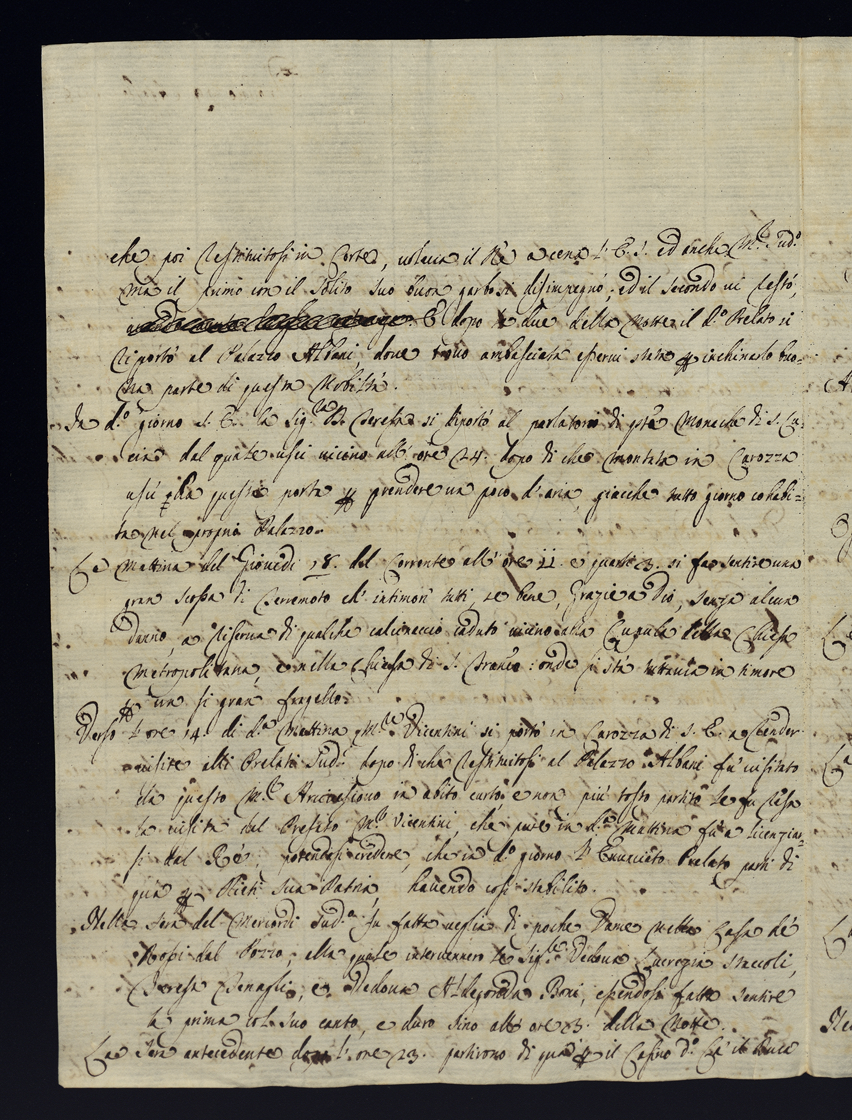 che poi restituitosi in Corte, voleva il Rè a cena S. E. S. ed anche M.r Sud.o
ma il primo con il solito suo buon garbo si disimpegnò, ed il secondo vi restò,
E dopo le due della Notte il d.o Prelato si
riportò al Palazzo Albani, dove trovò ambasciata esservi state p inchinarlo buo=
na parte di questa Nobiltà.
In d.o giorno S. E. la Sig.ra D. Teresa si riportò al parlatorio di q.te Monache di S. Lu=
cia dal quale uscì vicino all' ore 24. dopo di che montata in Carozza
uscì questa porta p prendere un poco d'aria, giacche tutto giorno coabi=
ta nel proprio Palazzo.
La Mattina del Giovedì 18. del Corrente all' ore 11. e quarti 3. si fe sentire una
gran scossa di Terremoto ch' intimorì tutti, se bene, Grazie a Dio, senza alcun
danno, a riserva di qualche calcinaccio caduto vicino alla Cupula della Chiesa
Metropolitana, e nella Chiesa di S. Franc.o: onde si stà tuttavia in timore
p un si gran fragello.
Verso l'ore 14. di d.a Mattina M.r Vicentini si portò in Carozza di S. E. a render
visite alli Prelati Sud.i dopo di che restituitosi al Palazzo Albani fu visitato
da questo M.r Arcivescovo in abito curto, e non più tosto partito le fu resa
la visita dal Presato M.r Vicentini, che pure in d.a Mattina fu a licenziar=
si dal Rè, potendosi credere, che in d.o giorno l' Enunciato Prelato parti di
qua p Rieti sua Patria, havendo così stabilito.
Nella sera del Mercordì Sud.o fu fatta veglia di poche Dame nella Casa de'
Nobi dal Pozzo, alla quale intervennero le Sig.re Vedova Lucrezia Staccoli,
Teresa Benaglio, e Vedova Aldegonda Boni, essendosi fatta sentire
la prima col suo canto, e durò sino all' ore 3. della Notte.
La sera antecedente l'ore 23. partirono di qua p il Casino d.o